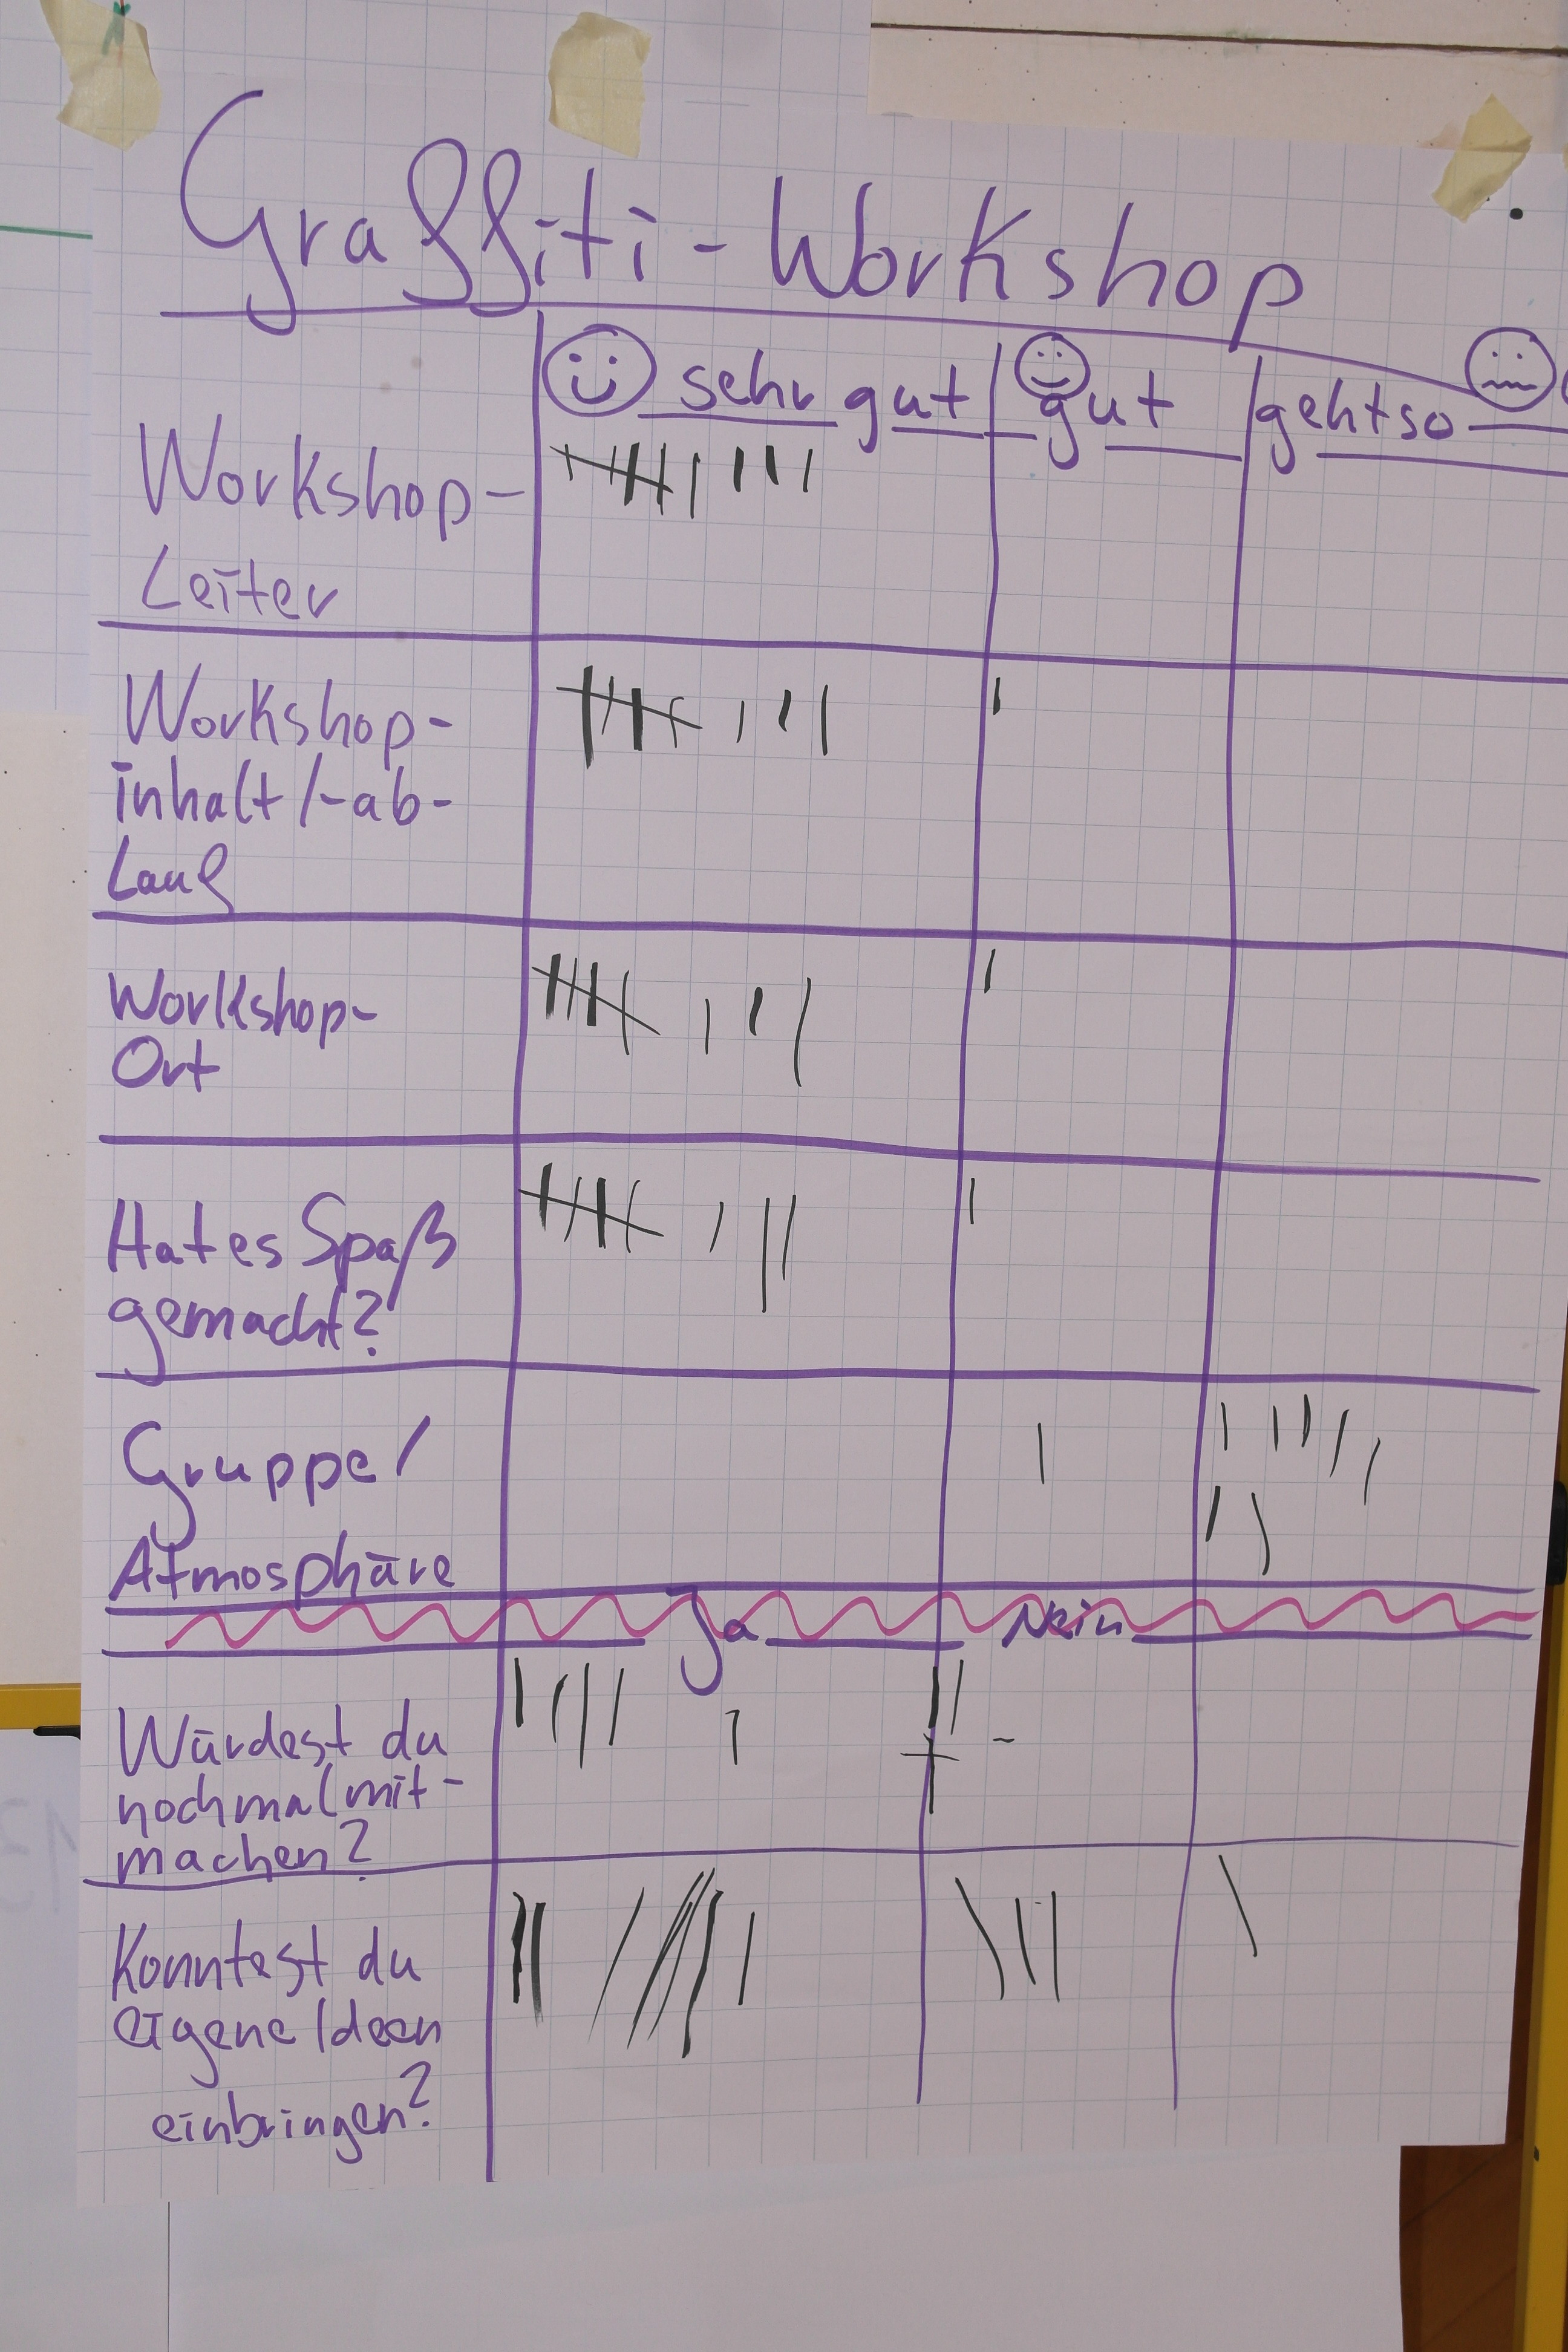 Graffiti-Workshop
sehr gut gut gehtso
Workshop-
Leiter
Workshop-
inhalt/-ab-
lauf
Workshop-
Ort
Hat es Spaß
gemacht?
Gruppe/
Atmosphäre
Ja Nein
Würdest du
nochmal mit-
machen?
Konntest du
eigene Ideen
einbringen?